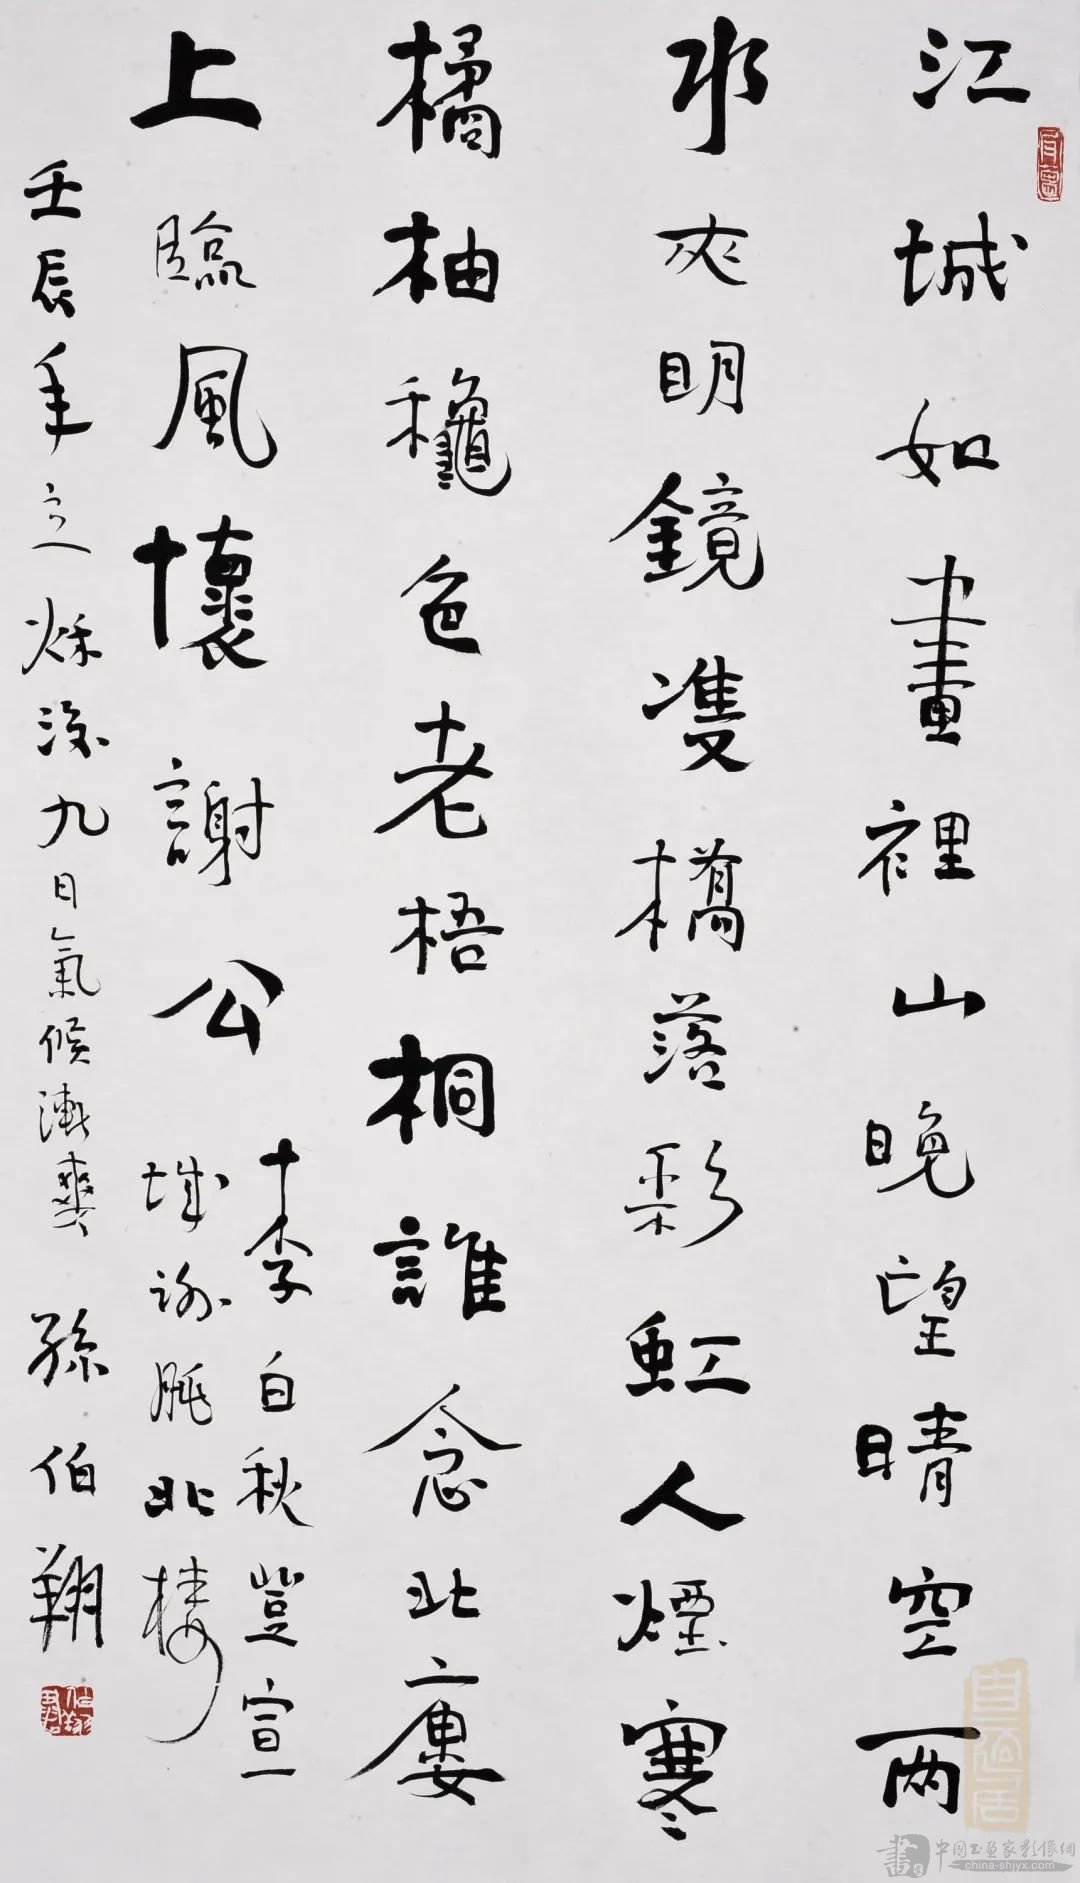 江城如畫裡山晚望晴空兩
水夾明鏡雙橋落彩虹人煙寒
橘柚穐色老梧桐誰念北廔
上臨風懷謝公
李白秋登宣
城謝朓北樓
壬辰年立秌後九日氣候漸爽 孫伯翔
書 中國书画家影像網
www.china-shjyx.com